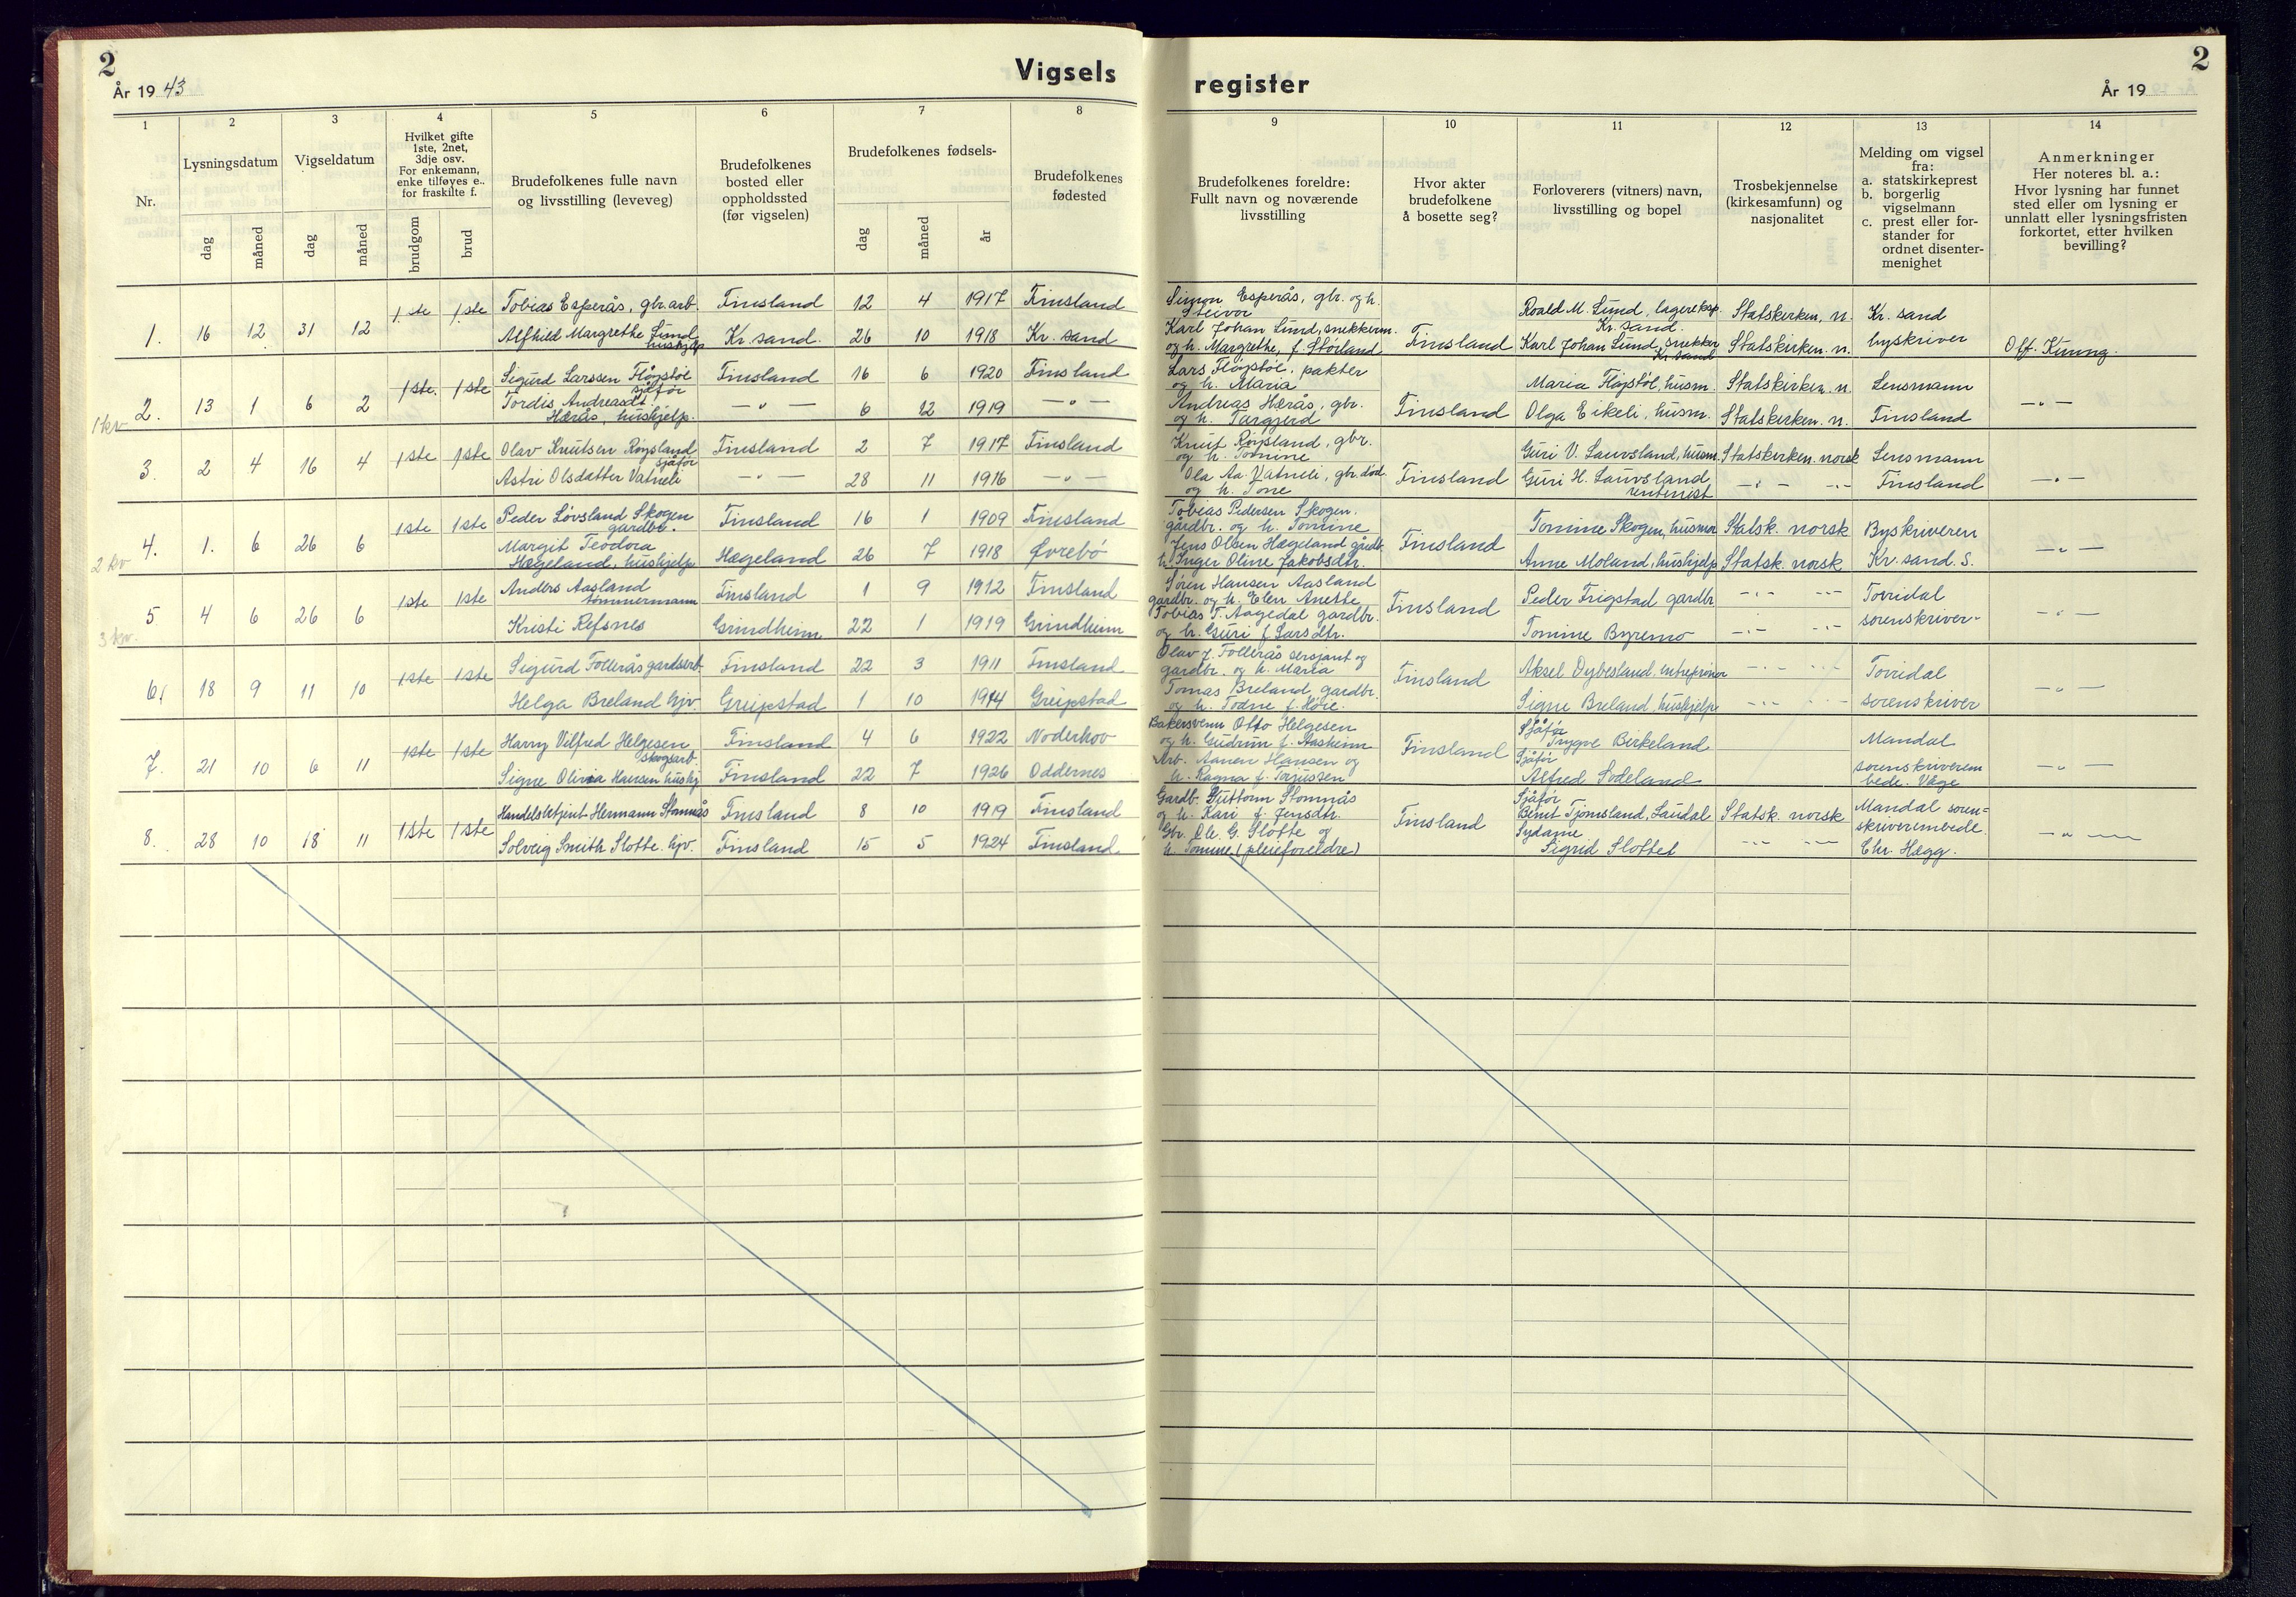 2
År 1943
Vigsels
register
År 19
2
1 2 3 4 5 6 7 8
9 10 11 12 13 14
Nr.
Lysningsdatum
dag måned
Vigseldatum
dag måned
Hvilket gifte
1ste, 2net,
3dje osv.
For enkemann,
enke tilføyes e..
for fraskilte f.
brudgom brud
Brudefolkenes fulle navn
og livsstilling (leveveg)
Brudefolkenes
bosted eller
oppholdssted
(før vigselen)
Brudefolkenes fødsels-
dag måned år
Brudefolkenes
fødested
Brudefolkenes foreldre:
Fullt navn og noværende
livsstilling
Hvor akter
brudefolkene
å bosette seg?
Forloverers (vitners) navn,
livsstilling og bopel
Trosbekjennelse
(kirkesamfunn) og
nasjonalitet
Melding om vigsel
fra:
a. statskirkeprest
b. borgerlig
vigselmann
c. prest eller for-
stander for
ordnet disenter-
menighet
Anmerkninger
Her noteres bl. a.:
Hvor lysning har funnet
sted eller om lysning er
unnlatt eller lysningsfristen
forkortet, etter hvilken
bevilling?
1. 16 12 31 12 1ste 1ste
Tobias Esperås, gbr.arb. Finsland 12 4 1917 Finsland
Alfhild Margrethe Lund hushjelp Kr.sand. 26 10 1918 Kr. sand
Simon Esperås, gbr. og h.
Steivor
Karl Johan Lund, snekkerm.
og h. Margrethe, f. Størland
Finsland
Roald M. Lund, lagereksp.
Kr. sand.
Karl Johan Lund, snekker
Kr. sand
Statskirken, n.
Statskirken. n.
Kr. sand
byskriver
Off. Kunng.
1 kv
2. 13 1 6 2 1ste. 1ste
Sigurd Larssen Fløystøl
sjåfør Finsland 16 6 1920 Finsland
Tordis Andreasdt.
Hærås, hushjelp. — " — 6 12 1919 — " —
Lars Fløystøl, pakter
og h. Maria
Andreas Hærås, gbr.
og h. Targjerd
Finsland
Maria Fløystøl, husm.
Olga Eikeli, husm.
Statskirken. n.
Statskirken. n.
Lensmann
Finsland
— " —
3. 2 4 16 4 1ste 1ste
Olav Knutsen Røysland
sjåfør Finsland 2 7 1917 Finsland
Astri Olsdatter Vatneli — " — 28 11 1916 — " —
Knut Røysland, gbr.
og h. Tomine
Ola Aa. Vatneli, gbr. død
og h. Tone
Finsland
Guri V. Lauvsland, husm.
Guri H. Lauvsland
rentenist
Statskirken. norsk
— " — — " —
Lensmann
Finsland
— " —
4. 1. 6 26 6 1ste 1ste
Peder Løvsland Skogen
gårdbr. Finsland 16 1 1909 Finsland
Margit Teodora
Hægeland, hushjelp Hægeland 26 7 1918 Øvrebö
Tobias Pedersen Skogen.
gårdbr. og h. Tomine
Jens Olsen Hægeland gårdb.
h. Inger Oline Jakobsdtr.
Finsland
Tomine Skogen, husmor
Anne Moland, hushjelp
Statsk. norsk
Statsk. norsk
Byskriveren
Kr. sand. S.
— " —
2 kv
5 4 6 26 6 1ste 1ste
Anders Aasland
tømmermann Finsland 1 9 1912 Finsland
Kristi Refsnes Grindheim 22 1 1919 Grindheim
Søren Hansen Aasland
gardbr. og h. Elen Anette
Tobias T. Aagedal gardbr.
og h. Guri f. Larsdtr.
Finsland
Peder Frigstad gardbr.
Tomine Byremo
— " — — " —
— " — — " —
Torridal
sorenskriver-
— " —
3 kv.
6. 18 9 11 10 1ste 1ste
Sigurd Follerås gardsarb. Finsland 22 3 1911 Finsland
Helga Breland hjv. Greipstad 1 10 1914 Greipstad
Olav J. Follerås sersjant og
gardbr. og h. Maria
Tomas Breland gardbr.
og h. Todne f. Høie.
Finsland
Aksel Dybesland, entreprenør
Signe Breland, hushjelp
— " — — " —
— " — — " —
Torridal
sorenskriver
— " —
7. 21 10 6 11 1ste 1ste
Harry Vilfred Helgesen
skogsarb. Finsland 4 6 1922 Norderhov
Signe Olivia Hansen hushj. Finsland 22 7 1926 Oddernes
Bakersvenn Otto Helgesen
og h. Gudrun f. Aasheim
Arb. Aanen Hansen og
h. Ragna f. Terjussen
Finsland
Sjåfør
Trygve Birkeland
Sjåfør
Alfred Sodeland
Mandal
sorenskriverem
bede. Våge
— " —
8. 28 10 18 11 1ste 1ste
Handelsbetjent Hermann Stomnås Finsland 8 10 1919 Finsland
Solveig Smith Slotte. hjv. Finsland 15 5 1924 Finsland
Gardb. Guttorm Stomnås
og h. Kari f. Jensdtr.
Gbr. Ole G. Slotte og
h. Tomine (pleieforeldre)
Finsland
Sjåfør
Bernt Tjomsland, Laudal
Sydame
Sigrid Slottet
Statsk. norsk
— " — — " —
Mandal soren=
skriverembede.
Chr. Hægg.
— " —